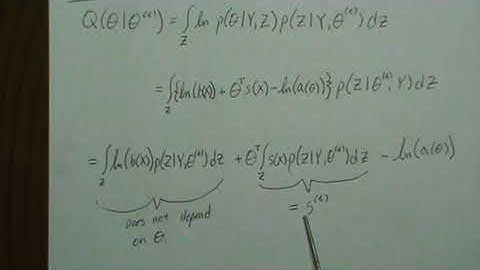 Q(θ|θ^(t)) = ∫_Z ln p(θ|Y,Z) p(Z|Y,θ^(t)) dZ
= ∫_Z {ln(b(x)) + θ^T s(x) - ln(a(θ))} p(Z|θ^(t), Y) dZ
= ∫_Z ln(b(x)) p(Z|Y,θ^(t)) dZ + θ^T ∫_Z s(x) p(Z|Y,θ^(t)) dZ - ln(a(θ))
Does not depend
on θ.
= s^(t)